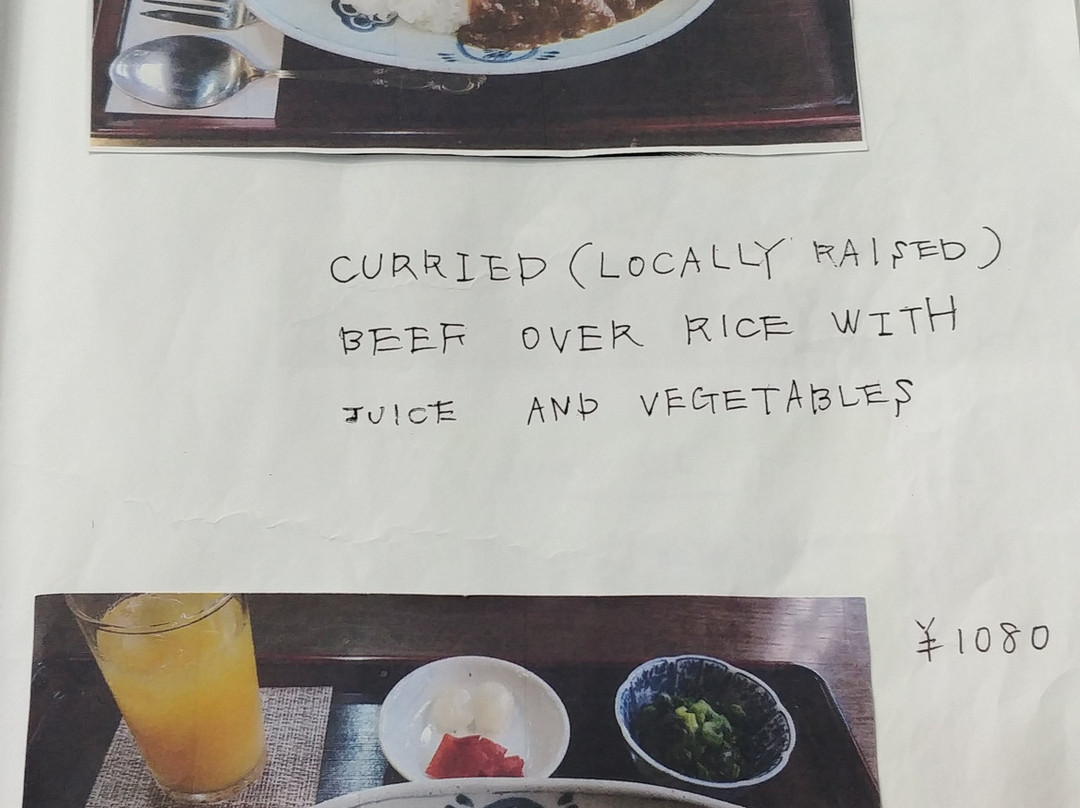 CURRIED (LOCALLY RAISED)
BEEF OVER RICE WITH
JUICE AND VEGETABLES
¥1080